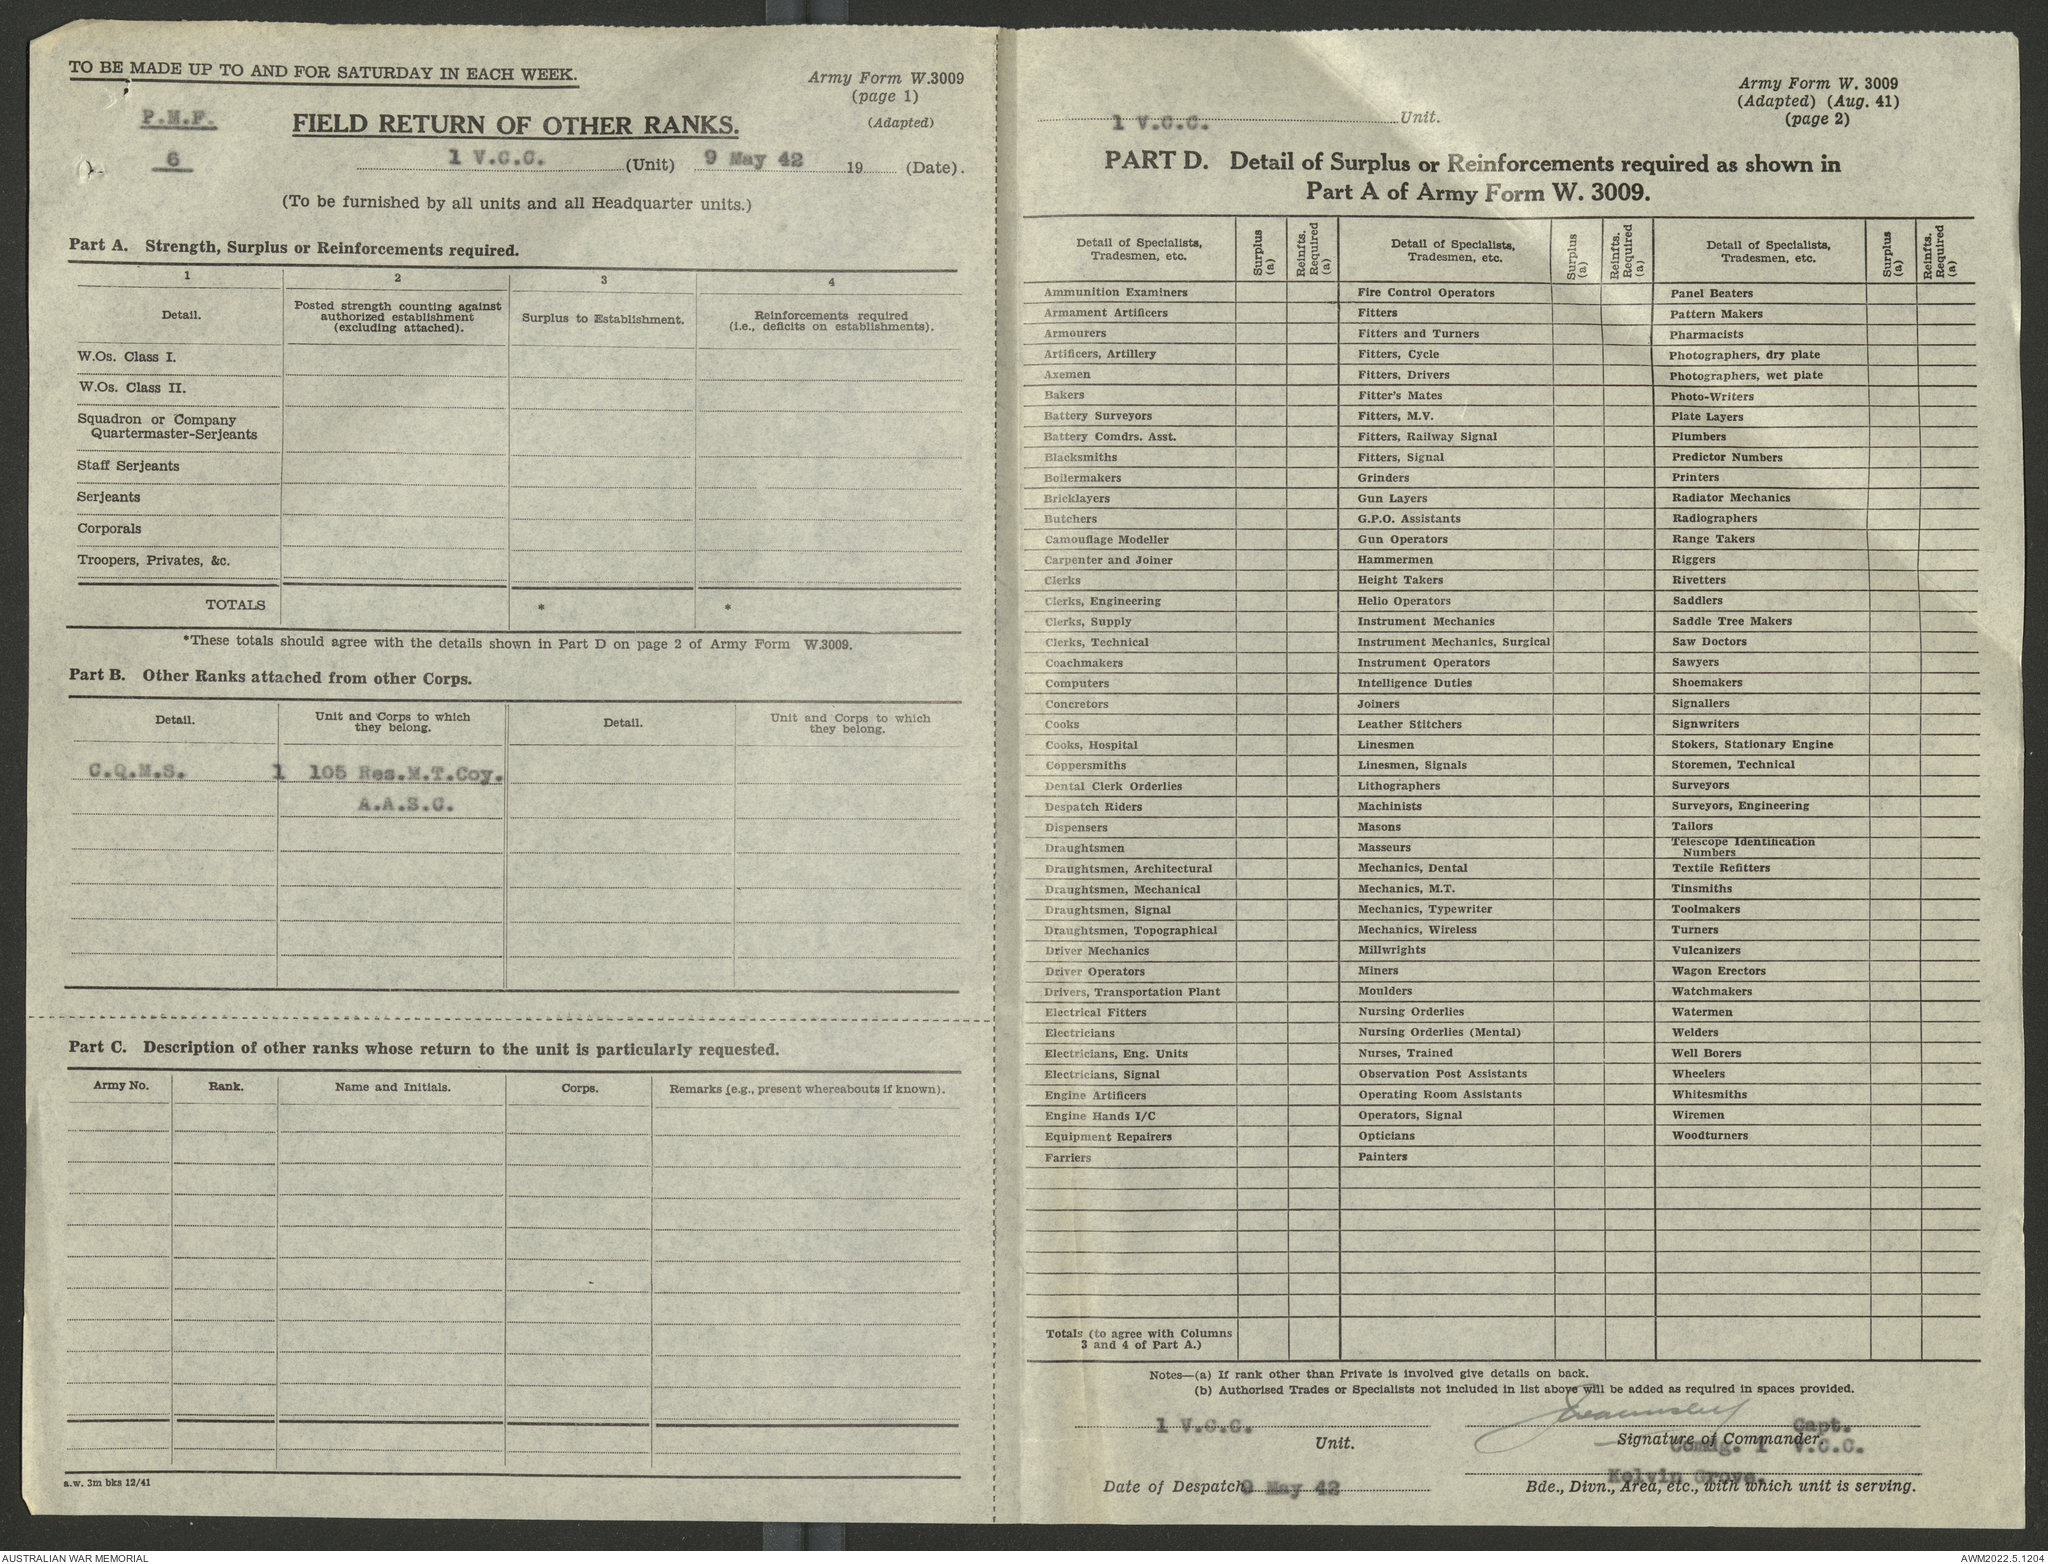 TO BE MADE UP TO AND FOR SATURDAY IN EACH WEEK.
Army Form W.3009
(page 1)
(Adapted)
P.M.F.
6
FIELD RETURN OF OTHER RANKS.
1 V.C.C. (Unit) 9 May 42 19 (Date).
(To be furnished by all units and all Headquarter units.)
Part A. Strength, Surplus or Reinforcements required.
1 2 3 4
Detail. Posted strength counting against authorized establishment (excluding attached). Surplus to Establishment. Reinforcements required (i.e., deficits on establishments).
W.Os. Class I.
W.Os. Class II.
Squadron or Company
Quartermaster-Serjeants
Staff Serjeants
Serjeants
Corporals
Troopers, Privates, &c.
TOTALS * *
*These totals should agree with the details shown in Part D on page 2 of Army Form W.3009.
Part B. Other Ranks attached from other Corps.
Detail. Unit and Corps to which they belong. Detail. Unit and Corps to which they belong.
C.Q.M.S. 1 105 Res.M.T.Coy.
A.A.S.C.
Part C. Description of other ranks whose return to the unit is particularly requested.
Army No. Rank. Name and Initials. Corps. Remarks (e.g., present whereabouts if known).
a.w. 3m bks 12/41
Army Form W. 3009
(Adapted) (Aug. 41)
(page 2)
1 V.C.C. Unit.
PART D. Detail of Surplus or Reinforcements required as shown in
Part A of Army Form W. 3009.
Detail of Specialists, Tradesmen, etc. Surplus (a) Reinfts. Required (a) Detail of Specialists, Tradesmen, etc. Surplus (a) Reinfts. Required (a) Detail of Specialists, Tradesmen, etc. Surplus (a) Reinfts. Required (a)
Ammunition Examiners Fire Control Operators Panel Beaters
Armament Artificers Fitters Pattern Makers
Armourers Fitters and Turners Pharmacists
Artificers, Artillery Fitters, Cycle Photographers, dry plate
Axemen Fitters, Drivers Photographers, wet plate
Bakers Fitter's Mates Photo-Writers
Battery Surveyors Fitters, M.V. Plate Layers
Battery Comdrs. Asst. Fitters, Railway Signal Plumbers
Blacksmiths Fitters, Signal Predictor Numbers
Boilermakers Grinders Printers
Bricklayers Gun Layers Radiator Mechanics
Butchers G.P.O. Assistants Radiographers
Camouflage Modeller Gun Operators Range Takers
Carpenter and Joiner Hammermen Riggers
Clerks Height Takers Rivetters
Clerks, Engineering Helio Operators Saddlers
Clerks, Supply Instrument Mechanics Saddle Tree Makers
Clerks, Technical Instrument Mechanics, Surgical Saw Doctors
Coachmakers Instrument Operators Sawyers
Computers Intelligence Duties Shoemakers
Concretors Joiners Signallers
Cooks Leather Stitchers Signwriters
Cooks, Hospital Linesmen Stokers, Stationary Engine
Coppersmiths Linesmen, Signals Storemen, Technical
Dental Clerk Orderlies Lithographers Surveyors
Despatch Riders Machinists Surveyors, Engineering
Dispensers Masons Tailors
Draughtsmen Masseurs Telescope Identification Numbers
Draughtsmen, Architectural Mechanics, Dental Textile Refitters
Draughtsmen, Mechanical Mechanics, M.T. Tinsmiths
Draughtsmen, Signal Mechanics, Typewriter Toolmakers
Draughtsmen, Topographical Mechanics, Wireless Turners
Driver Mechanics Millwrights Vulcanizers
Driver Operators Miners Wagon Erectors
Drivers, Transportation Plant Moulders Watchmakers
Electrical Fitters Nursing Orderlies Watermen
Electricians Nursing Orderlies (Mental) Welders
Electricians, Eng. Units Nurses, Trained Well Borers
Electricians, Signal Observation Post Assistants Wheelers
Engine Artificers Operating Room Assistants Whitesmiths
Engine Hands I/C Operators, Signal Wiremen
Equipment Repairers Opticians Woodturners
Farriers Painters
Totals (to agree with Columns
3 and 4 of Part A.)
Notes—(a) If rank other than Private is involved give details on back.
(b) Authorised Trades or Specialists not included in list above will be added as required in spaces provided.
1 V.C.C. Capt.
Unit. Signature of Commander.
Comdg. 1 V.C.C.
Kelvin Grove.
Date of Despatch 9 May 42 Bde., Divn., Area, etc., with which unit is serving.
AUSTRALIAN WAR MEMORIAL AWM2022.5.1204